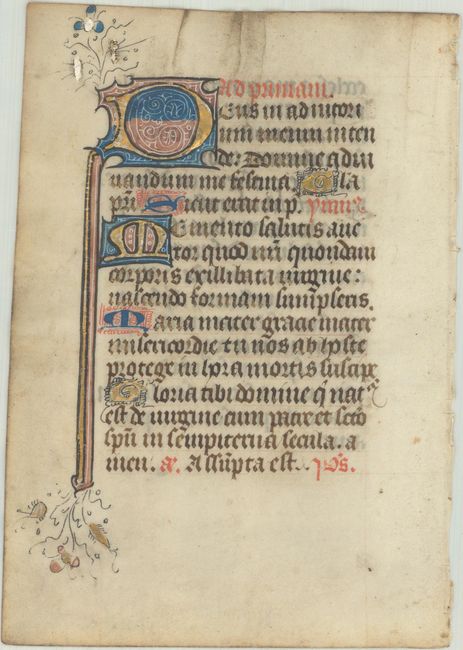 Ad primam.
Deus in adiutori
um meum inten
de. Domine adiu
uandum me festina. Gla
pri Sicut erat in p. ymn9
Memento salutis auc
tor quod nri quondam
corporis ex illibata uirgine:
nascendo formam sumpseris.
Maria mater gracie mater
misericordie tu nos ab hoste
protege in hora mortis suscipe
Gloria tibi domine q nat9
est de uirgine cum patre et scto
spu in sempiterna secula. a
men. a. Assumpta est. ps.